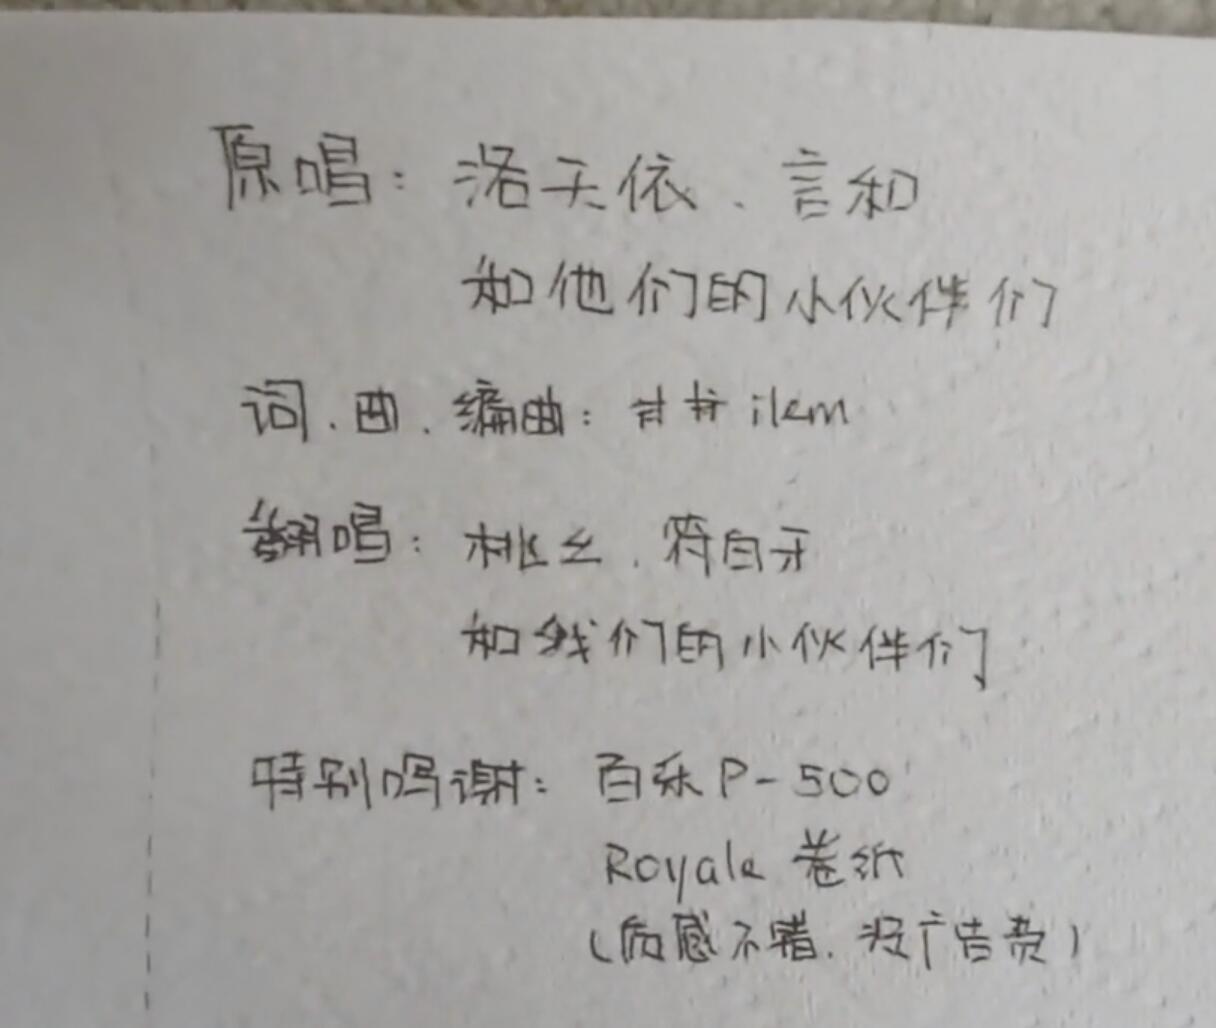 原唱：洛天依、言和
和他们的小伙伴们
词、曲、编曲：井井ilem
翻唱：桃乡、符白牙
和我们的小伙伴们
特别鸣谢：百乐P-500
Royale 卷纸
（质感不错，没广告费）